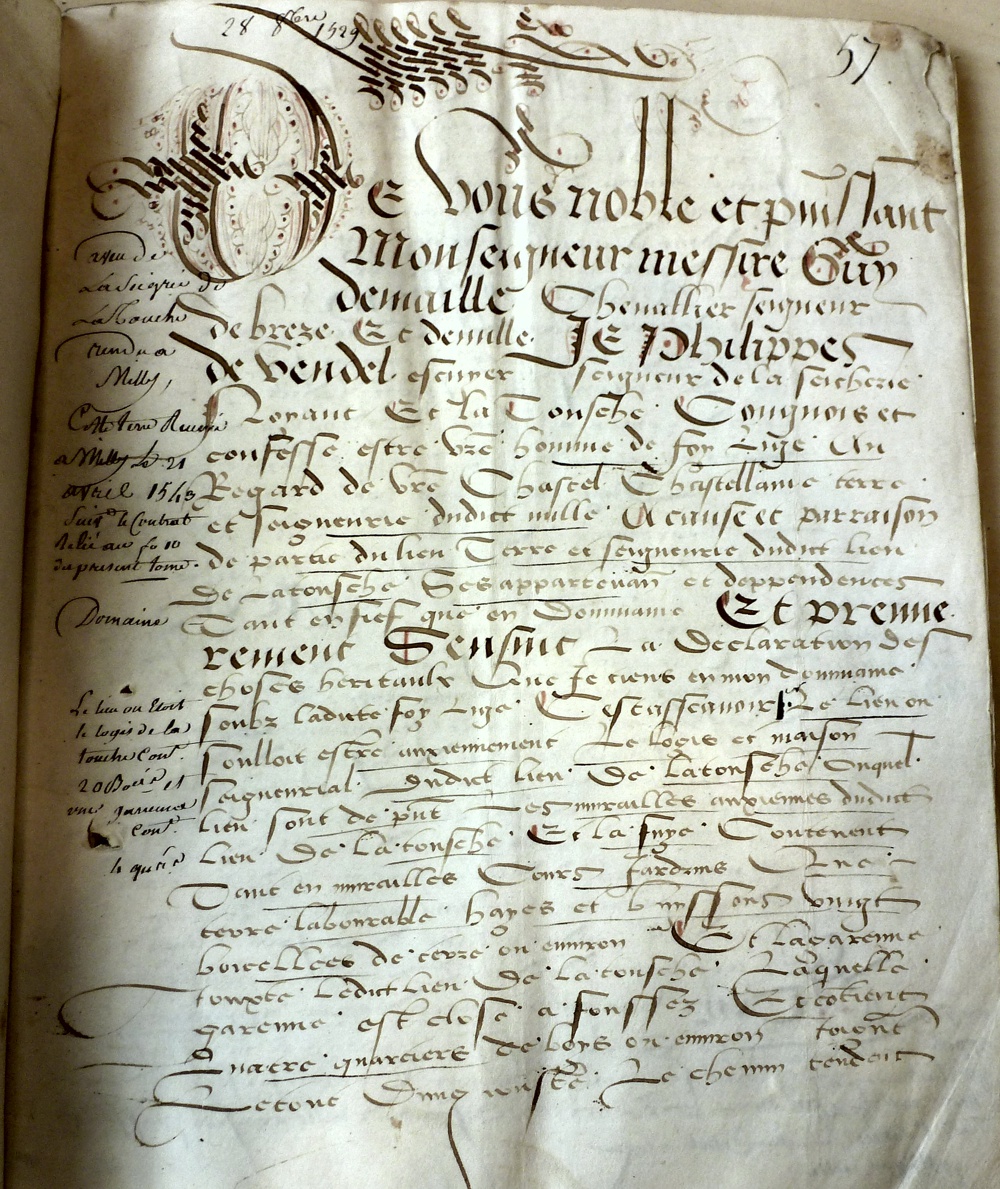 28 8bre 1529
57
De vous noble et puissant
Monseigneur messire Guy
demaille Chevallier seigneur
de breze Et demille. JE Philippes
de vendel escuyer seigneur dela seicherie
Noyant Et la Tousche Congnois et
confesse estre vre homme de foy Lige Au
Regard de vre Chastel Chastellanie terre
et seigneurie dudict mille A cause et parraison
de partie du lieu Terre et seigneurie dudict lieu
de Latousche Ses appartenan et deppendences
Tant en fief que en Dommaine Et premie
rement Sensuit La Declaration des
choses heritaulx Que Je tiens en mon dommaine
soubz ladicte foy Lige Cestasscavoir Le Lieu ou
soulloit estre anxiennement Le logis et maison
seigneurial dudict lieu De Latousche Onquel
lieu sont de pnt Les murailles anxiennes dudict
lieu De La tousche Et la fuye Contenent
Tant en murailles Cours Jardrins Que
terre labourable hayes et buyssons vingt
boicellees de terre ou environ Et lagarenne
iouxte Ledict Lieu De la tousche Laquelle
garenne est close a foussez Et cotient
Quatre quartiers de boys ou environ Ioignt
Letout Dung couste Le chemin tendent
aveu de
La Seigrie de
La Touche
rendu a
Milly,
Cette terre Reunie
a Milly le 21
avril 1543
Suivt le Contrat
Relié au fo 10
du present tome.
Domaine
Le lieu ou Etoit
le logis de la
touche Cont.
20 Boicées et
une garenne
Cont.
4 qers